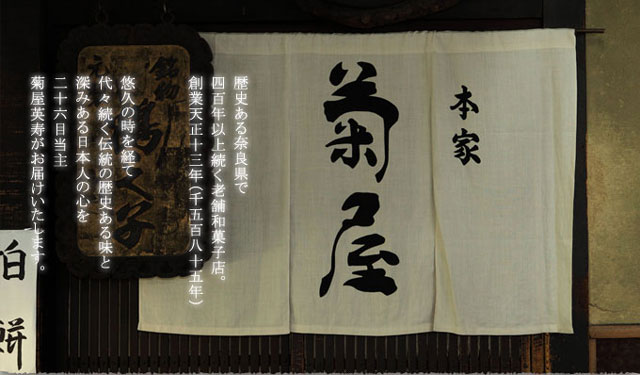 本家
菊屋
歴史ある奈良県で
四百年以上続く老舗和菓子店。
創業天正十三年（千五百八十五年）
悠久の時を経て
代々続く伝統の歴史ある味と
深みある日本人の心を
二十六目当主
菊屋英寿がお届けいたします。
銘物
餅